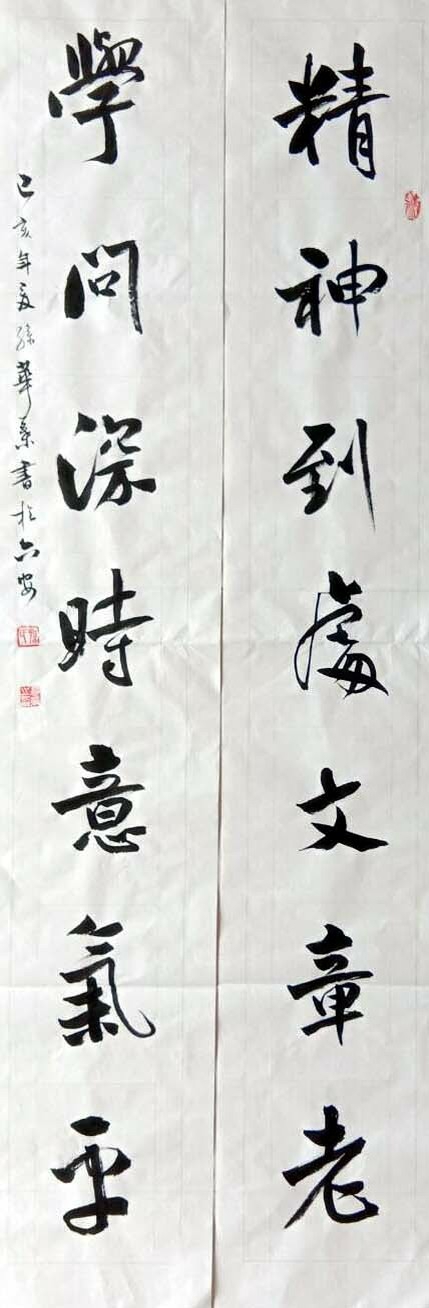 精神到處文章老
學問深時意氣平
己亥年夏孫華業書於六安